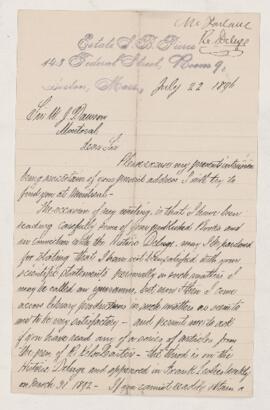 Mc Farlane
Re Deluge
Estate S. B. Pierce
143 Federal Street, Room 9,
Boston, Mass, July 22 1896
Sir W. J. Dawson
Montreal
Dear Sir
Please excuse my
being uncertain of your present address I will try to
find you at Montreal -
The occasion of my writing, is that I have been
reading carefully some of your published Works and
in connection with the Historic Deluge, may I be pardoned
for stating that I have not been satisfied with your
scientific statements personally in such matters I
may be called an ignoramus, but now & then I come
across literary productions in such matters as seem to
me to be very satisfactory - and permit me to ask
if you have read any of a series of articles from
the pen of R. - the third is on the
Historic Deluge and appeared in Frank Leslies weekly
on March 31 1892 - If you cannot readily obtain a